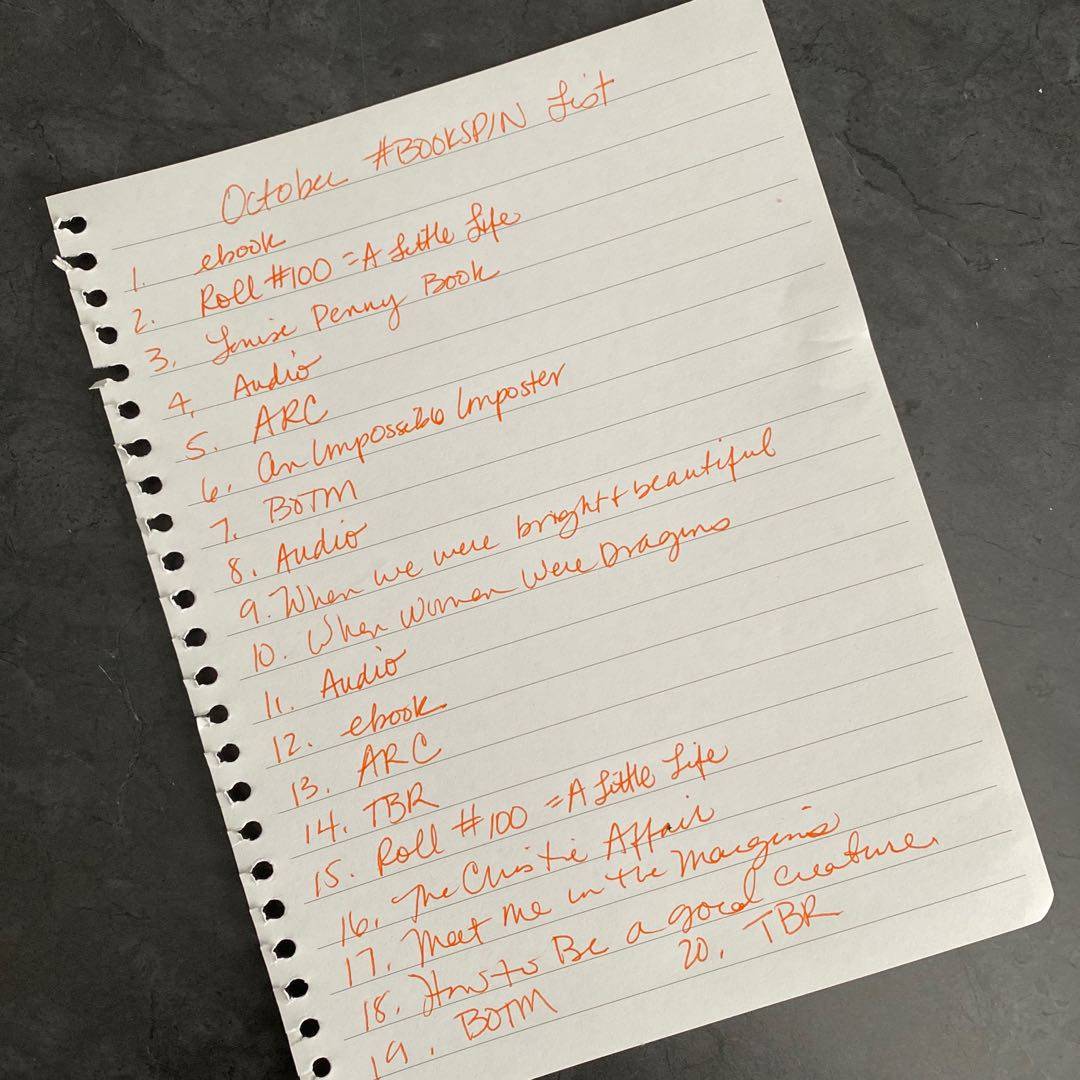 October #BOOKSPIN List
1. ebook
2. Roll #100 = A Little Life
3. Louise Penny Book
4. Audio
5. ARC
6. An Impossible Imposter
7. BOTM
8. Audio
9. When we were bright + beautiful
10. When Women Were Dragons
11. Audio
12. ebook
13. ARC
14. TBR
15. Roll #100 = A Little Life
16. The Christie Affair
17. Meet Me in the Margins
18. How to Be a good creature
19. BOTM 20. TBR